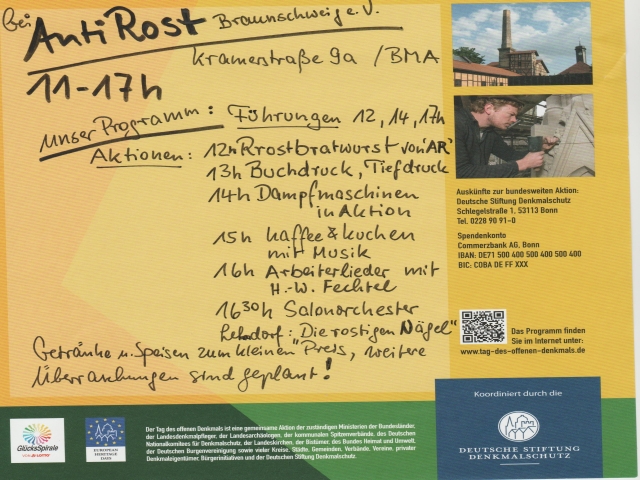 bei AntiRost Braunschweig e.V.
Kramerstraße 9a /BMA
11-17h
Unser Programm: Führungen 12, 14, 17h
Aktionen: 12h Rrostbratwurst von 'AR'
13h Buchdruck, Tiefdruck
14h Dampfmaschinen
in Aktion
15h Kaffee & Kuchen
mit Musik
16h Arbeiterlieder mit
H.-W. Fechtel
16 30h Salonorchester
Lehndorf: "Die rostigen Nägel"
Getränke u. Speisen zum kleinen Preis, weitere
Überraschungen sind geplant!
Auskünfte zur bundesweiten Aktion:
Deutsche Stiftung Denkmalschutz
Schlegelstraße 1, 53113 Bonn
Tel. 0228 90 91-0
Spendenkonto
Commerzbank AG, Bonn
IBAN: DE71 500 400 500 400 500 400
BIC: COBA DE FF XXX
Das Programm finden
Sie im Internet unter:
www.tag-des-offenen-denkmals.de
Koordiniert durch die
DEUTSCHE STIFTUNG
DENKMALSCHUTZ
GlücksSpirale
VON LOTTO
EUROPEAN
HERITAGE
DAYS
Der Tag des offenen Denkmals ist eine gemeinsame Aktion der zuständigen Ministerien der Bundesländer,
der Landesdenkmalpfleger, der Landesarchäologen, der kommunalen Spitzenverbände, des Deutschen
Nationalkomitees für Denkmalschutz, der Landeskirchen, der Bistümer, des Bundes Heimat und Umwelt,
der Deutschen Burgenvereinigung sowie vieler Kreise, Städte, Gemeinden, Verbände, Vereine, privater
Denkmaleigentümer, Bürgerinitiativen und der Deutschen Stiftung Denkmalschutz.